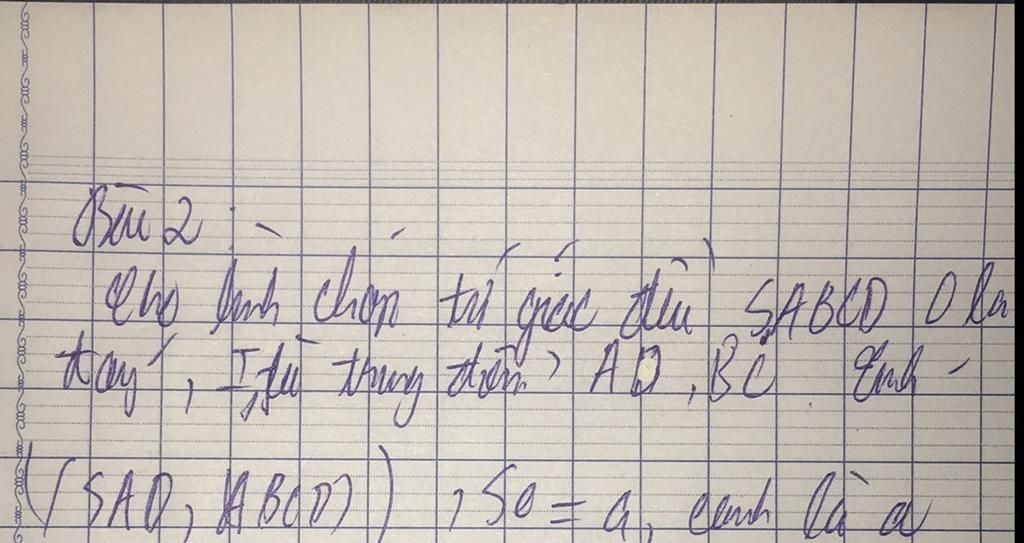 Bài 2 :
Cho hình chóp tứ giác đều SABCD O là
trung điểm AD, BC
(SAD, ABCD) , SO = a, cạnh là a